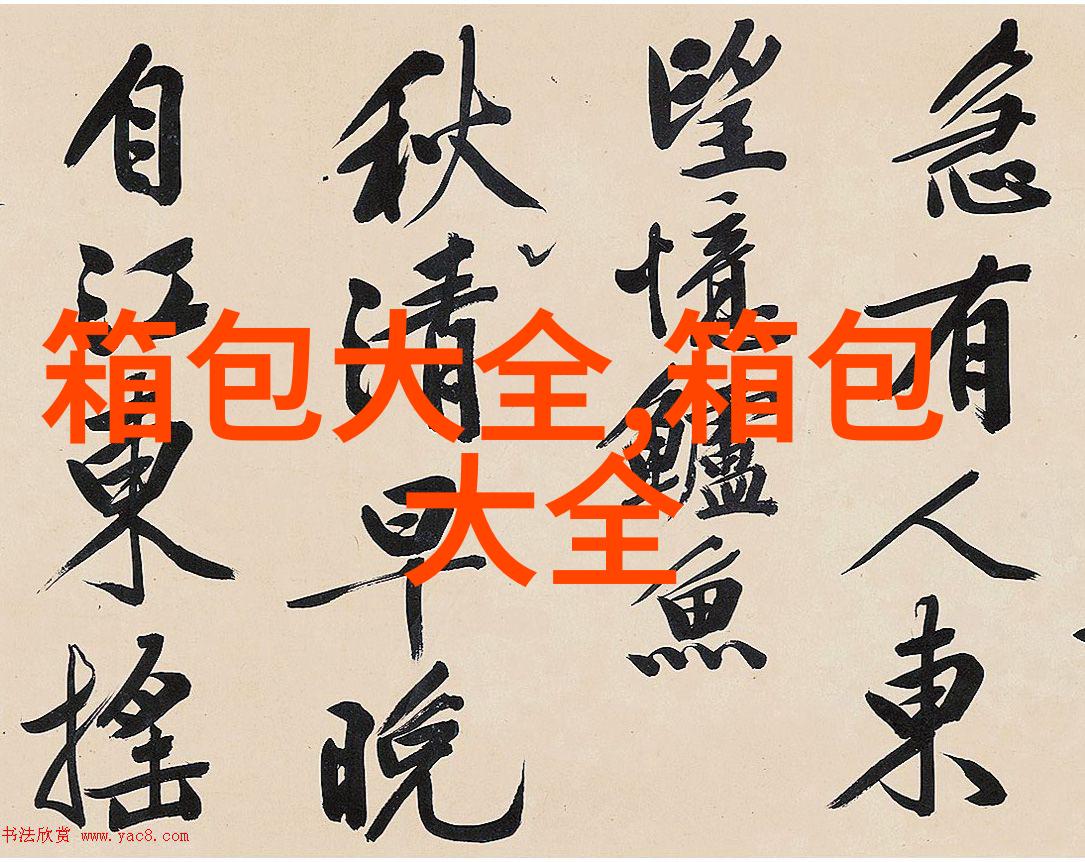 急有人東
望憶鱸魚
秋清早晚
自江東搖
箱包大全,箱包
大全
书法欣赏 www.yac8.com